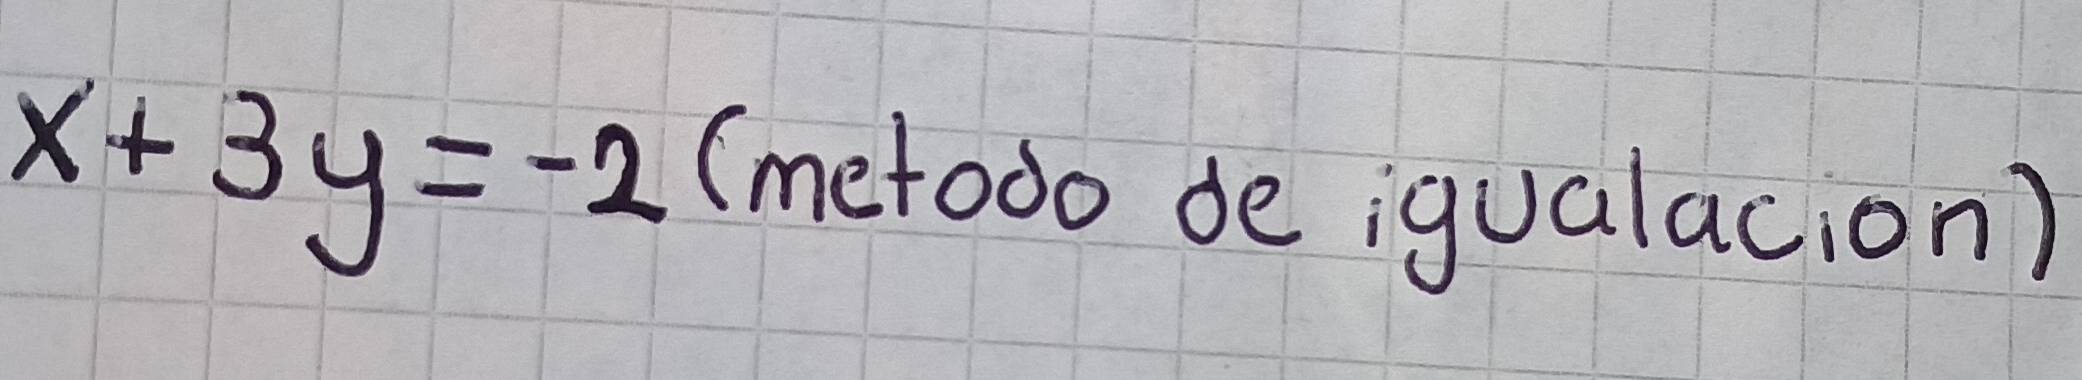 x+3y=-2 (metodo de igualacion)